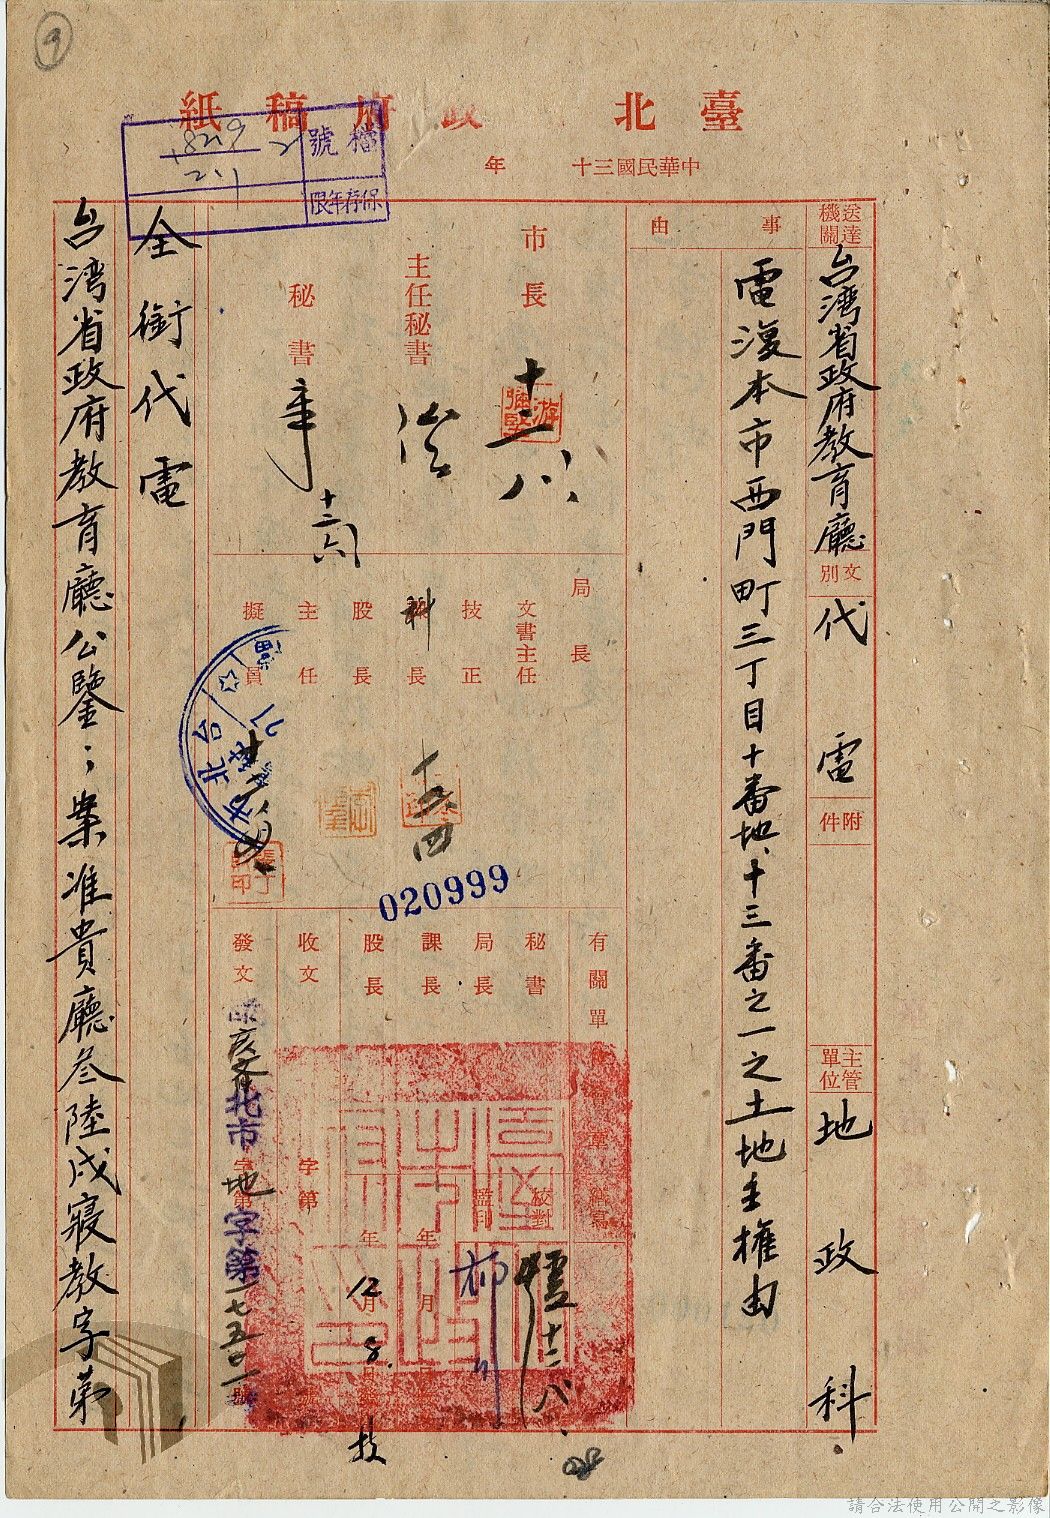 9
臺北 政府稿紙
中華民國三十 年
檔號
保存年限
送達機關
台湾省政府教育廳
文別
代電
附件
主管單位
地政科
事由
電復本市西門町三丁目十番地、十三番之一之土地主權由
市長
十二八
主任秘書
秘書
十二六
局長
文書主任
技正
科長
股長
主任
擬員
020999
有關單
秘書
局長
課長
股長
收文
字第
發文
北市地字第一七五〇一號
校對
監印
年
月
年
12月
8
全銜代電
台湾省政府教育廳公鑒；案准貴廳叁陸戌寢教字第
請合法使用公開之影像